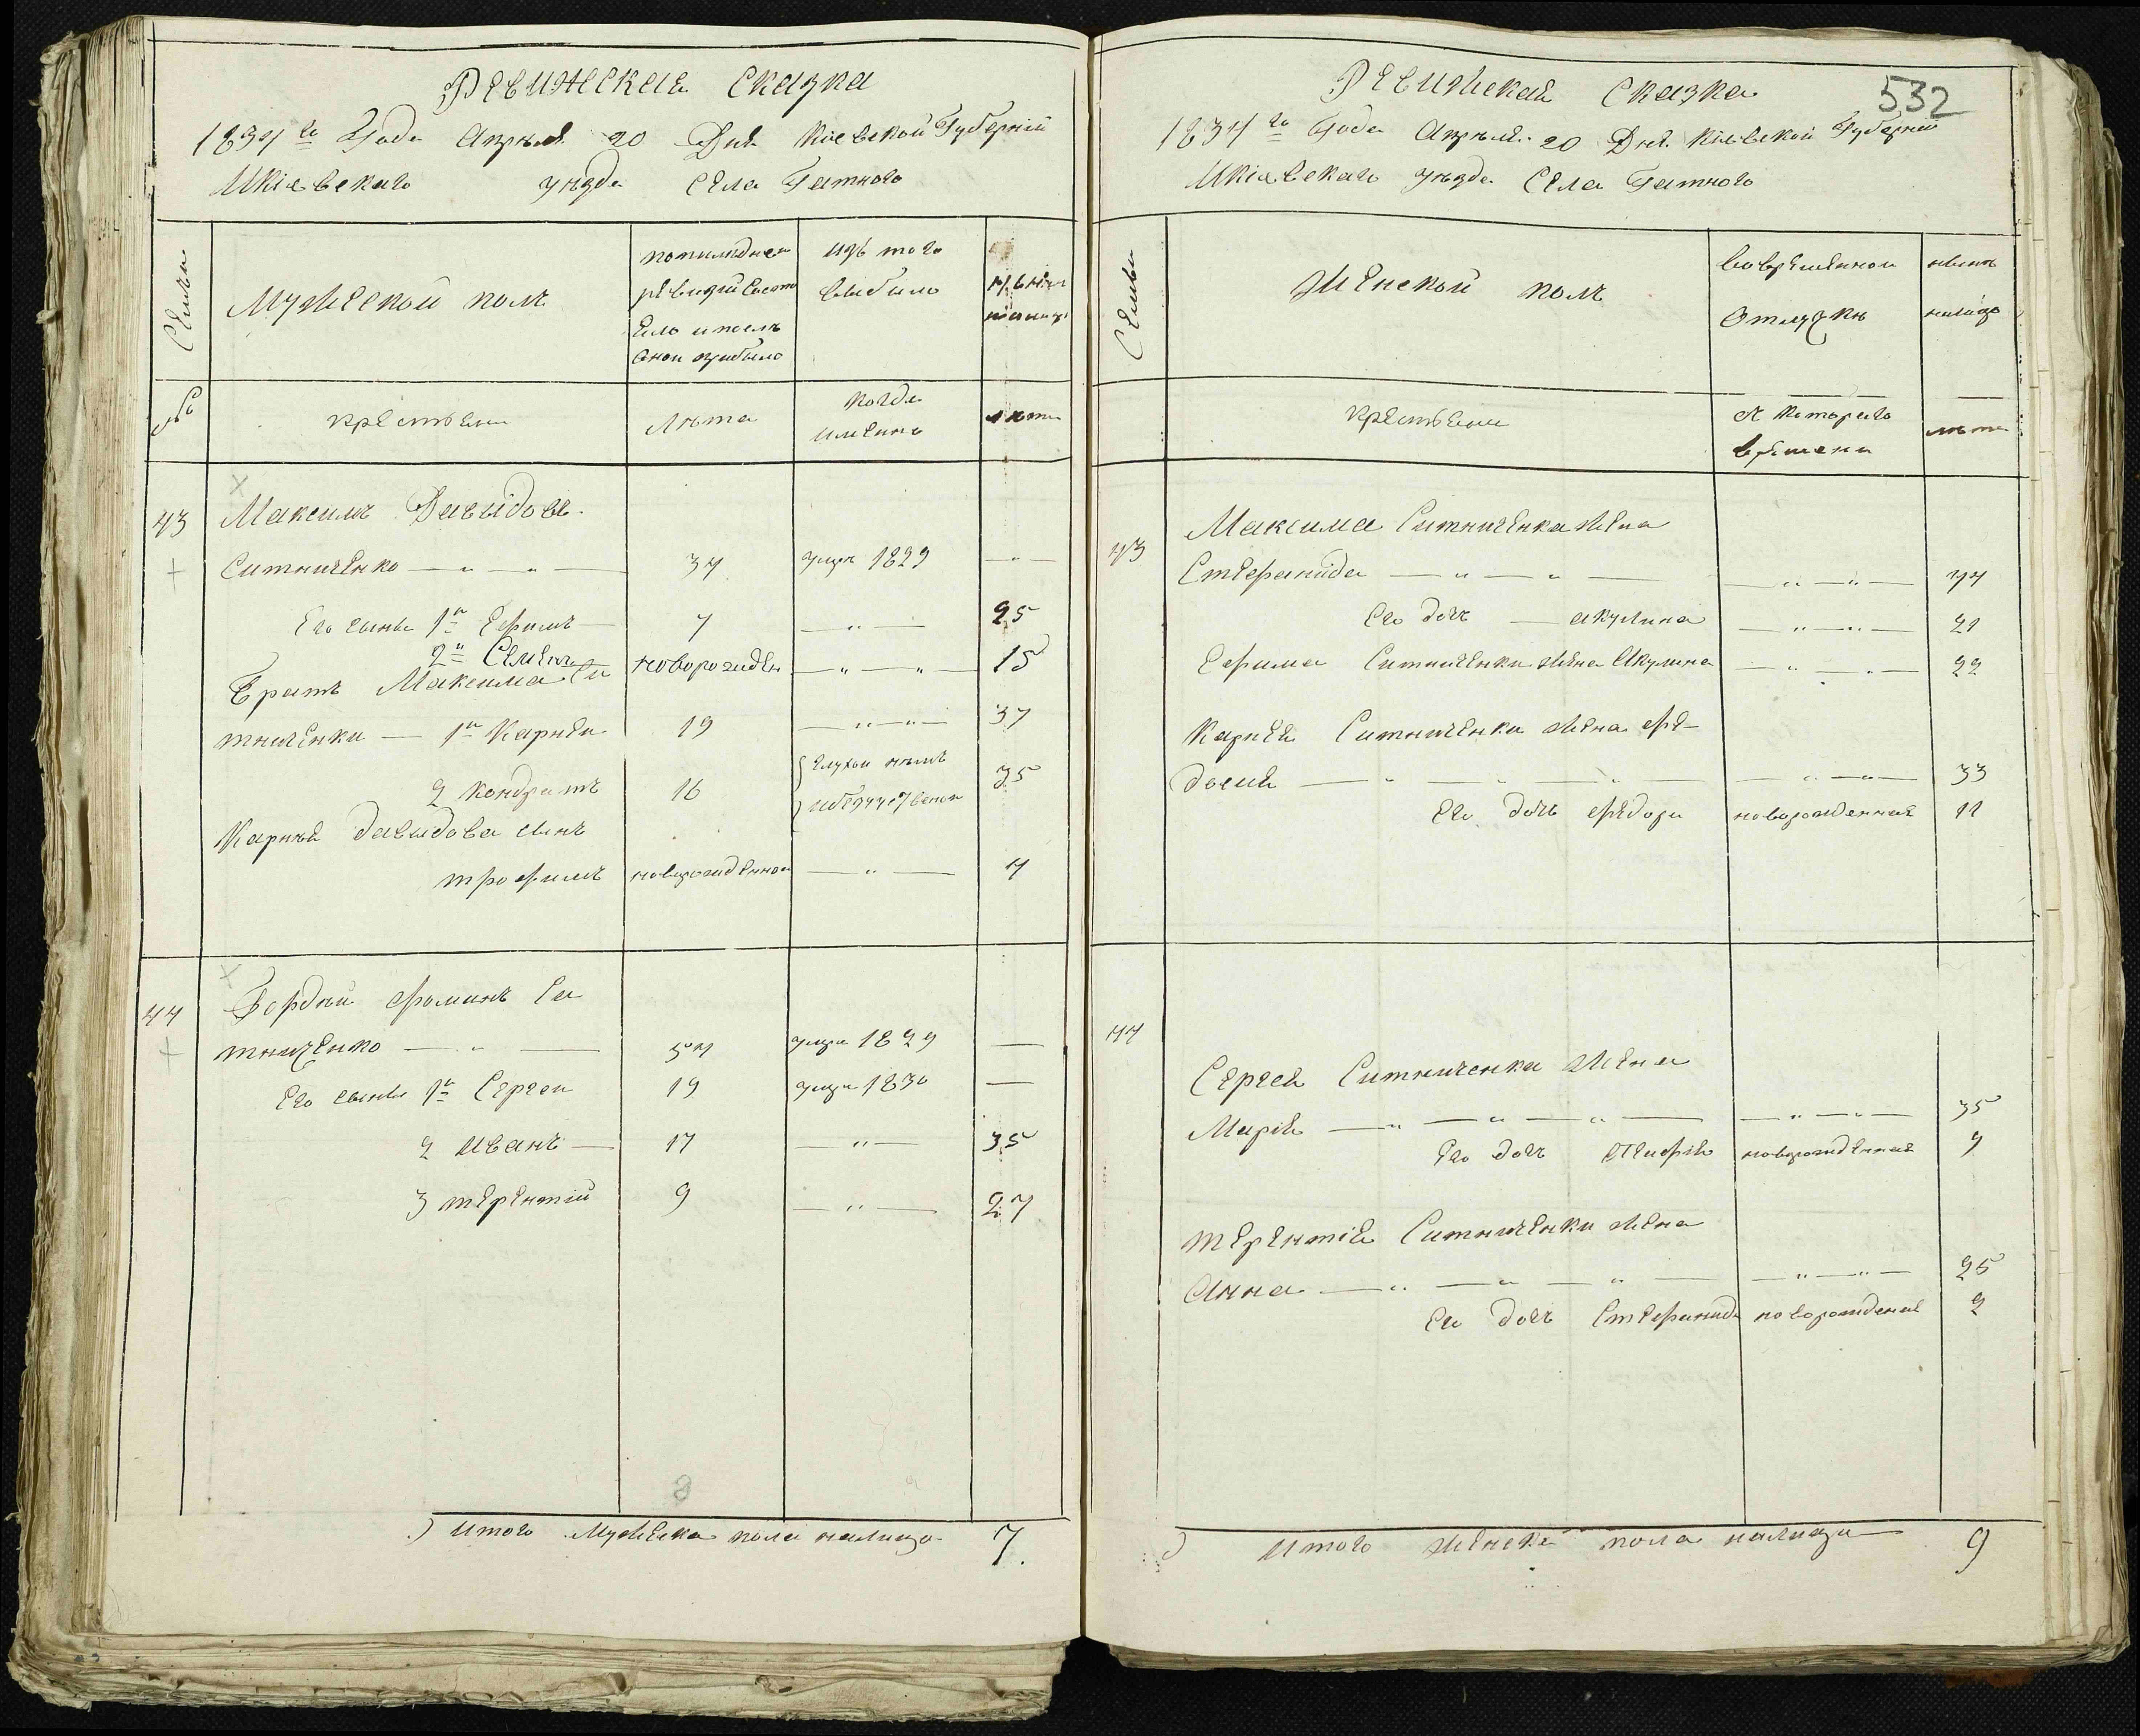 Ревижская Сказка
1834го Года Апреля 20 Дня Кіевской Губерніи
Икіевскаго уезда Села Гатного
Семьи
Мужеской полъ
попоследнеи
ревизіи состо
яло и после
оной прибыло
изъ того
выбыло
ныне
налицо
№
крестьяни
Лета
когда
имянно
лета
43
Максимъ Давыдовъ
Ситниченко — " — " —
34
умре 1829
— " —
Его сынъ 1й Ефимъ —
7
— " —
25
2й Семенъ
новорожден
— " — " —
15
Братъ Максима Си
тниченки — 1й Карней
19
— " — " —
37
2 Кондратъ
16
глухой немъ
35
Карнея Давыдова сынъ
трофимъ
новорожденной
— " —
4
44
Гордей фоминъ Си
тниченко — " —
54
умре 1829
—
Его сынъ 1й Сергеи
19
умре 1830
—
2 иванъ —
17
— " —
35
3 терентій
9
— " —
27
8
итого Мужеска пола налицо
7.
532
Ревижская Сказка
1834го Года Апреля 20 Дня Кіевской Губерніи
Икіевскаго уезда Села Гатного
Семьи
Женской полъ
вовременной
отлучке
ныне
налицо
крестьяни
с котораго
времени
лета
43
Максима Ситниченка жена
Стефанида — " — " —
— " — " —
44
Его дочъ — акулина
— " — " —
21
Ефима Ситниченки жена Акулина
— " — " —
22
Карнея Ситниченки жена фе-
досия — " — " — " —
— " — " —
33
Его дочъ федора
новорожденная
11
44
Сергея Ситниченки жена
Марія — " — " — " —
— " — " —
35
Его дочъ
новорожденная
9
терентія Ситниченки жена
Анна — " — " — " —
— " — " —
25
Его дочъ Стефанида
новорожденая
2
итого женска пола налицо —
9